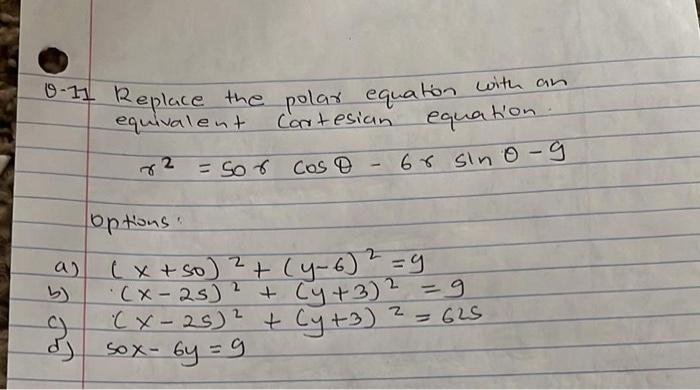 Q-11 Replace the polar equation with an
equivalent Cartesian equation.
r² = 50r cos θ - 6r sin θ - 9
Options:
a) (x+50)² + (y-6)² = 9
b) (x-25)² + (y+3)² = 9
c) (x-25)² + (y+3)² = 625
d) 50x - 6y = 9